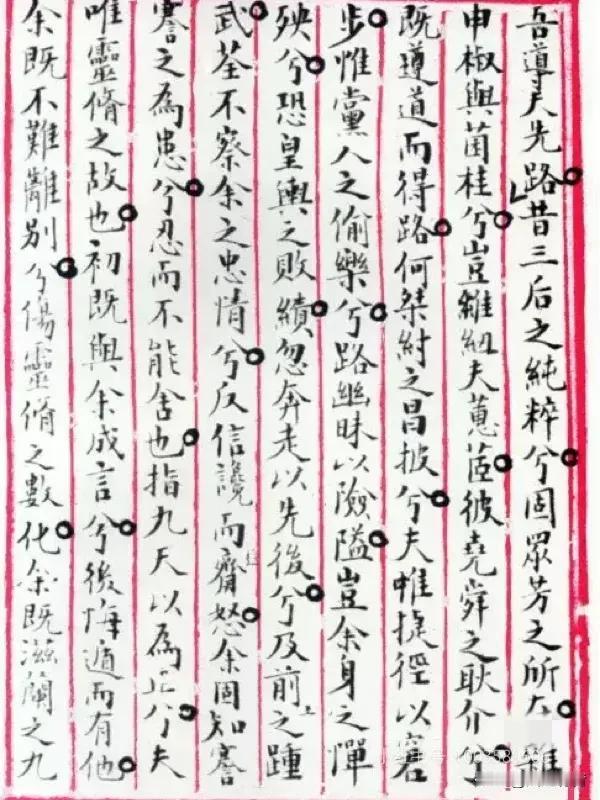 吾導夫先路昔三后之純粹兮固眾芳之所在雜
申椒與菌桂兮豈維紉夫蕙茝彼堯舜之耿介兮
既遵道而得路何桀紂之昌披兮夫惟捷徑以窘
步惟黨人之偷樂兮路幽昧以險隘豈余身之憚
殃兮恐皇輿之敗績忽奔走以先後兮及前之踵
武荃不察余之忠情兮反信讒而齌怒余固知謇
謇之為患兮忍而不能舍也指九天以為正兮夫
唯靈脩之故也初既與余成言兮後悔遁而有他
余既不難離別兮傷靈脩之數化余既滋蘭之九